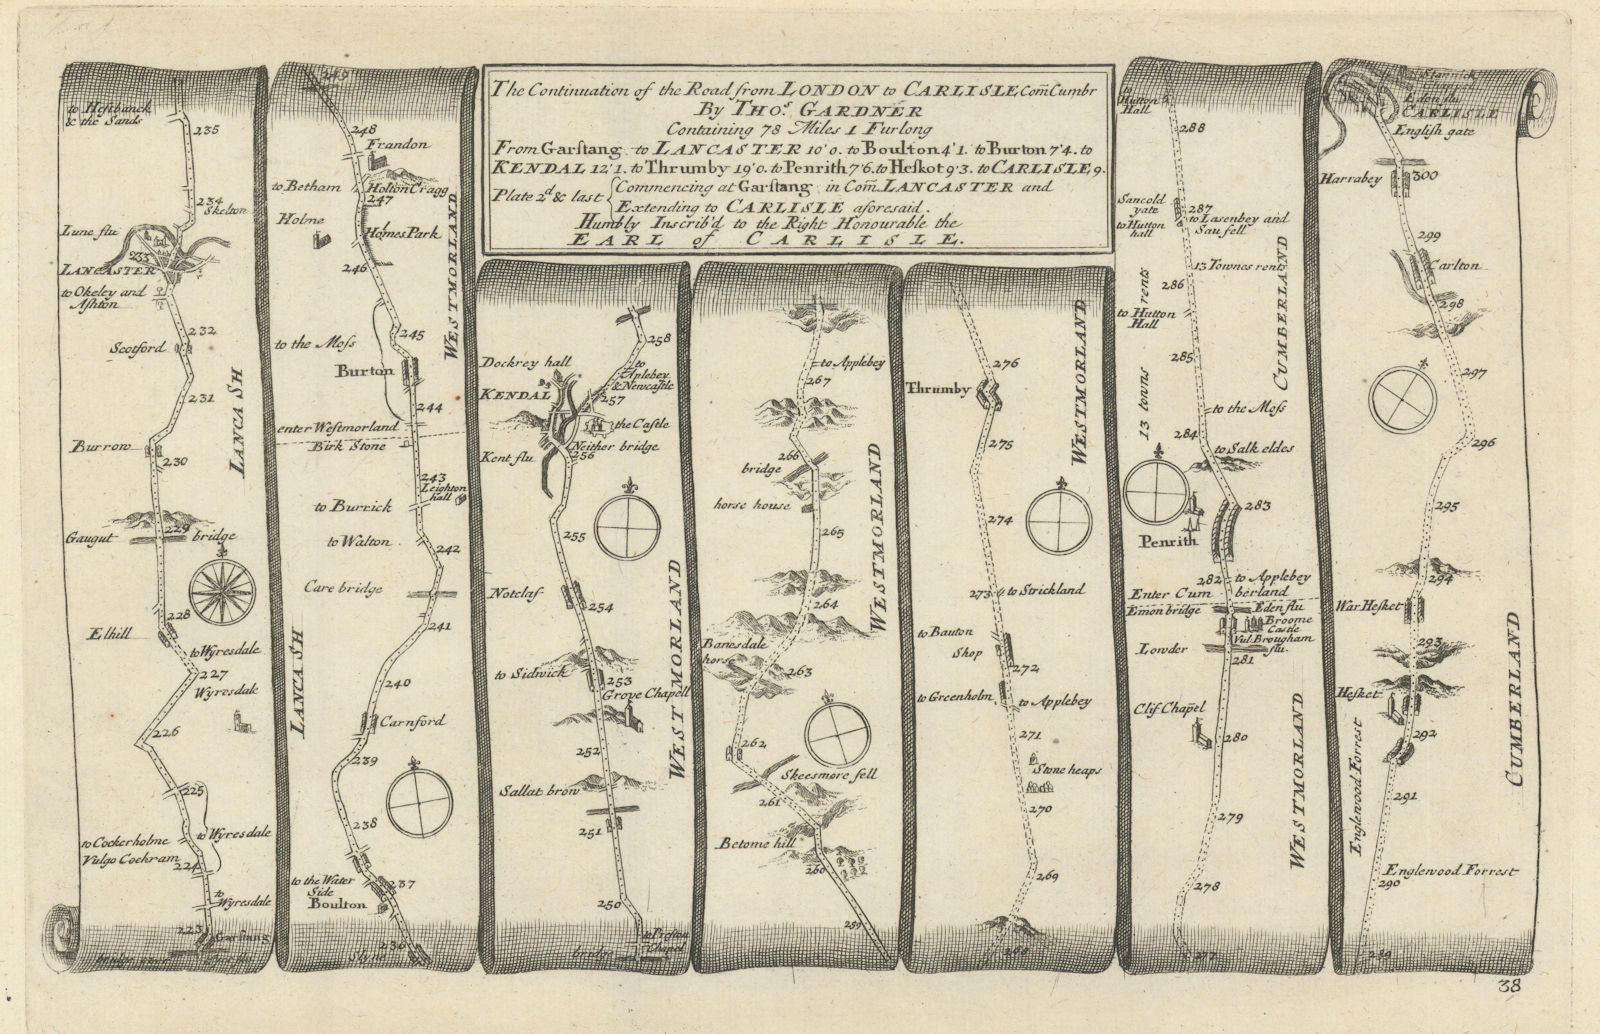 The Continuation of the Road from LONDON to CARLISLE Com Cumbr
By THOs. GARDNER
Containing 78 Miles 1 Furlong
From Garstang to LANCASTER 10'0. to Boulton 4'1. to Burton 7'4. to
KENDAL 12'1. to Thrumby 19'0. to Penrith 7'6. to Heskot 9'3. to CARLISLE, 9.
Plate 2d & last { Commencing at Garstang in Com LANCASTER and
Extending to CARLISLE aforesaid.
Humbly Inscrib'd to the Right Honourable the
EARL of CARLISLE.
to Hestbanck
& the Sands
235
234
Skelton
Lune flu
233
LANCASTER
to Okeley and
Ashton
232
Scotford
LANCA SH
231
Burrow
230
229
Gaugut bridge
228
Elhill
to Wyresdale
227
Wyresdale
226
225
to Cockerholme
to Wyresdale
Vulgo Cockram
224
to
Wyresdale
223
Garstang
249
248
Frandon
to Betham
Holton Cragg
247
Holme
Homes Park
246
WESTMORLAND
245
to the Moss
Burton
244
enter Westmorland
Birk Stone
243
Leighton
hall
to Burrick
to Walton
242
Care bridge
241
LANCA SH
240
Carnford
239
238
to the Water
Side
237
Boulton
236
Slyne
258
Dockrey hall
to
Aplebey
& Newcastle
KENDAL
257
the Castle
Neither bridge
Kent flu
256
255
Noteclaf
254
WESTMORLAND
to Sidwick
253
Grove Chapell
252
Sallat brow
251
250
to Preston
Chapel
bridge
to Applebey
267
266
bridge
horse house
265
WESTMORLAND
264
Banesdale
horse
263
262
Skeesmore fell
261
Betome hill
260
259
276
Thrumby
WESTMORLAND
275
274
273
to Strickland
to Bauton
Shop
272
to Greenholm
to Applebey
271
Stone heaps
270
269
268
to
Hutton
Hall
288
Sancold
yate
287
to Lasenbey and
Saufell
to Hutton
hall
13 Townes rents
286
13 towns rents
to Hutton
Hall
CUMBERLAND
285
to the Moss
284
to Salkeldes
283
Penrith
282
to Applebey
Enter Cumberland
Emon bridge
Eden flu
Broome
Castle
Vul. Brougham
Lowder
flu.
281
Clif Chapel
280
WESTMORLAND
279
278
277
Eden flu
CARLISLE
English gate
Harrabey
300
299
Carlton
298
297
296
295
294
War Hesket
293
Hesket
292
CUMBERLAND
Englewood Forrest
291
Englewood Forrest
290
289
38